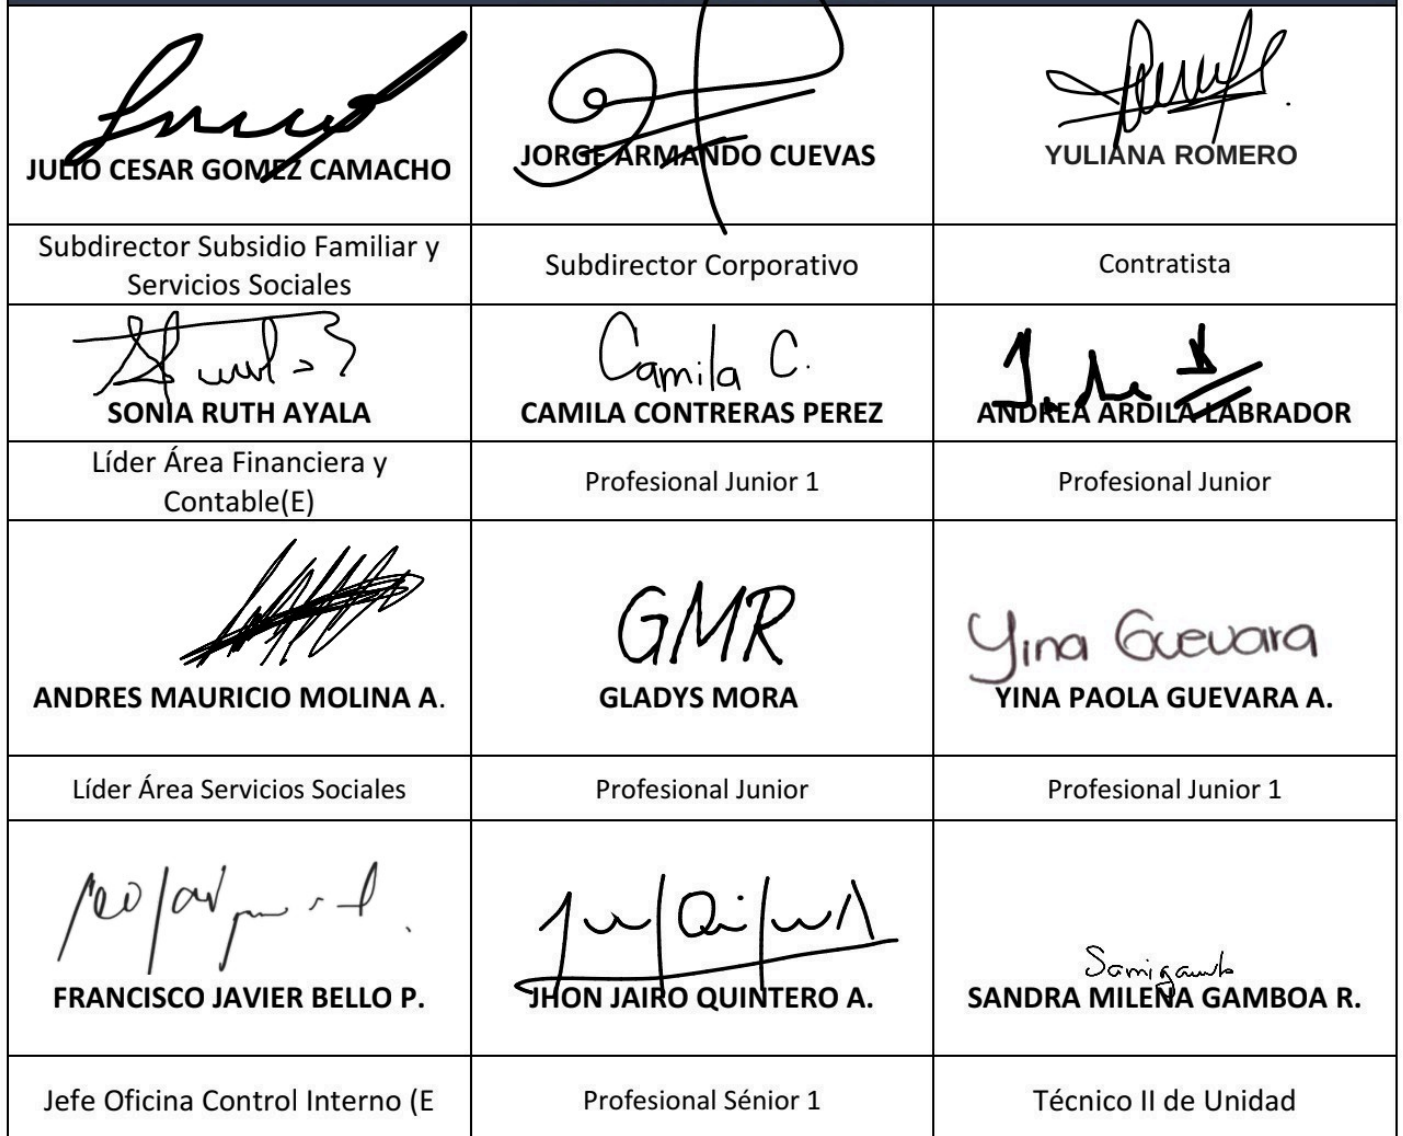 JULIO CESAR GOMEZ CAMACHO
JORGE ARMANDO CUEVAS
YULIANA ROMERO
Subdirector Subsidio Familiar y
Servicios Sociales
Subdirector Corporativo
Contratista
Camila C.
SONIA RUTH AYALA
CAMILA CONTRERAS PEREZ
ANDREA ARDILA LABRADOR
Líder Área Financiera y
Contable(E)
Profesional Junior 1
Profesional Junior
GMR
Yina Guevara
ANDRES MAURICIO MOLINA A.
GLADYS MORA
YINA PAOLA GUEVARA A.
Líder Área Servicios Sociales
Profesional Junior
Profesional Junior 1
FRANCISCO JAVIER BELLO P.
JHON JAIRO QUINTERO A.
SANDRA MILENA GAMBOA R.
Jefe Oficina Control Interno (E
Profesional Sénior 1
Técnico II de Unidad